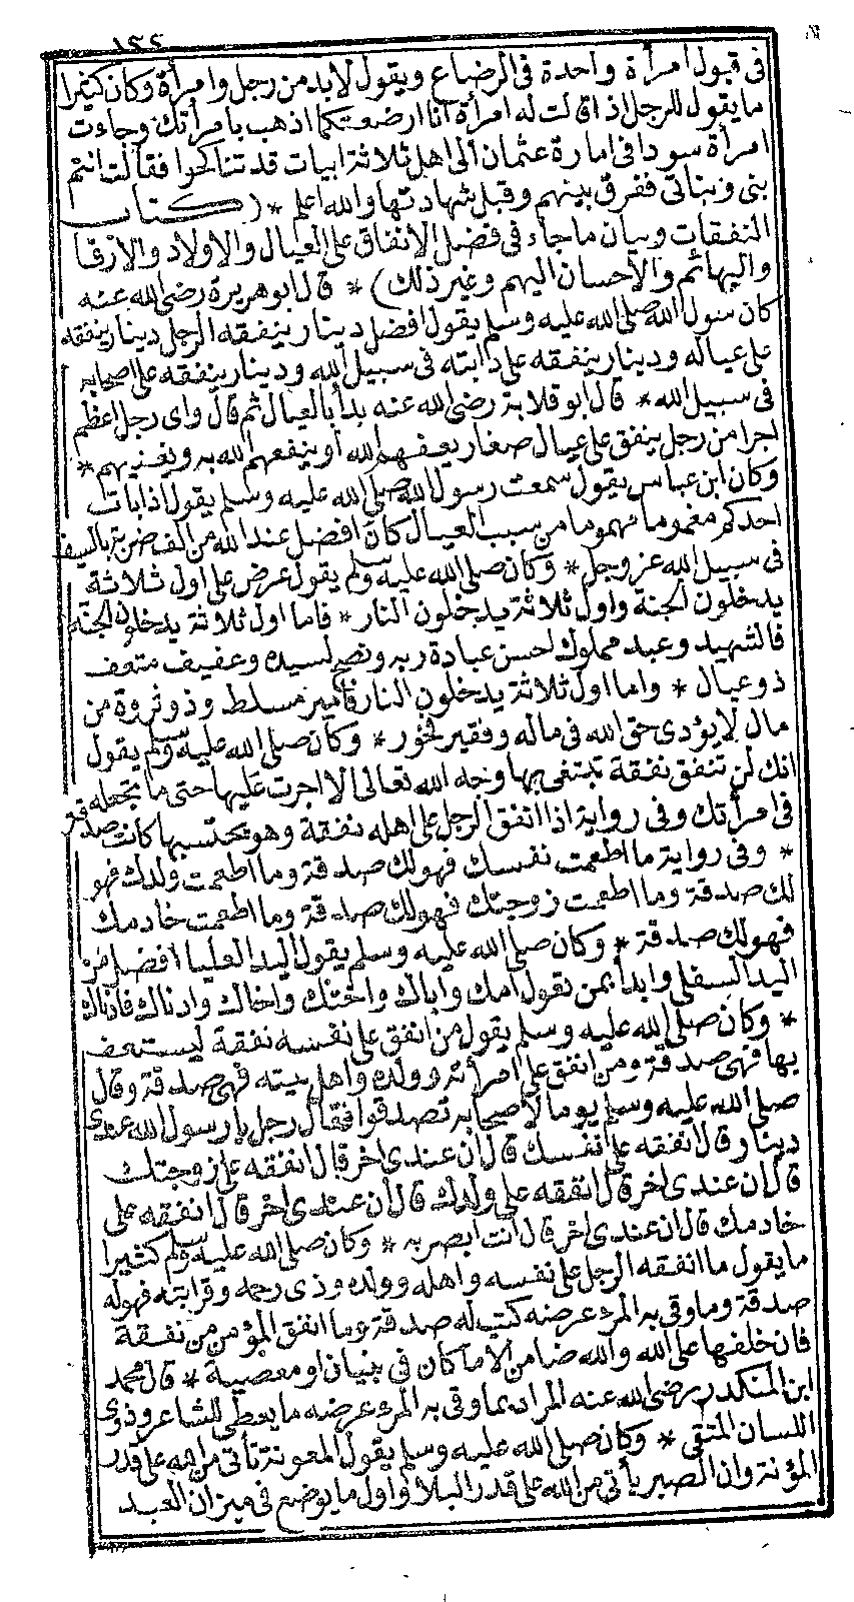 ١٢٢
فى قبول امرأة واحدة فى الرضاع ويقول لابد من رجل وامرأة وكان كثيرا
ما يقول للرجل اذا قالت له امرأة أنا ارضعتكما اذهب بامرأتك وجاءت
امرأة سودا فى امارة عثمان الى اهل ثلاثة ابيات قد تناكحوا فقالت انتم
بنى وبناتى ففرق بينهم وقبل شهادتها والله اعلم * (كتاب
النفقات وبيان ما جاء فى فضل الانفاق على العيال والاولاد والارقا
والبهائم والاحسان اليهم وغير ذلك) * قال ابو هريرة رضى الله عنه
كان رسول الله صلى الله عليه وسلم يقول افضل دينار ينفقه الرجل دينار ينفقه
على عياله ودينار ينفقه على دابته فى سبيل الله ودينار ينفقه على اصحابه
فى سبيل الله * قال ابو قلابة رضى الله عنه بدأ بالعيال ثم قال واى رجل اعظم
اجرا من رجل ينفق على عيال صغار يعفهم الله او ينفعهم الله به ويغنيهم *
وكان ابن عباس يقول سمعت رسول الله صلى الله عليه وسلم يقول اذا بات
احدكم مغموما مهموما من سبب العيال كان افضل عند الله من الف ضربة بالسيف
فى سبيل الله عز وجل * وكان صلى الله عليه وسلم يقول عرض على اول ثلاثة
يدخلون الجنة واول ثلاثة يدخلون النار * فاما اول ثلاثة يدخلون الجنة
فالشهيد وعبد مملوك احسن عبادة ربه ونصح لسيده وعفيف متعفف
ذو عيال * واما اول ثلاثة يدخلون النار فأمير مسلط وذو ثروة من
مال لا يؤدى حق الله فى ماله وفقير فخور * وكان صلى الله عليه وسلم يقول
انك لن تنفق نفقة تبتغى بها وجه الله تعالى الا اجرت عليها حتى ما تجعله فى
فى امرأتك وفى رواية اذا انفق الرجل على اهله نفقة وهو يحتسبها كانت صدقة
* وفى رواية ما اطعمت نفسك فهو لك صدقة وما اطعمت ولدك فهو
لك صدقة وما اطعمت زوجتك فهو لك صدقة وما اطعمت خادمك
فهو لك صدقة * وكان صلى الله عليه وسلم يقول اليد العليا افضل من
اليد السفلى وابدأ بمن تعول امك وأباك واختك واخاك وادناك فادناك
* وكان صلى الله عليه وسلم يقول من انفق على نفسه نفقة ليستعف
بها فهى صدقة ومن انفق على امرأته وولده واهل بيته فهى صدقة وقال
صلى الله عليه وسلم يوما لاصحابه تصدقوا فقال رجل يا رسول الله عندى
دينار قال انفقه على نفسك قال ان عندى اخر قال انفقه على زوجتك
قال ان عندى اخر قال انفقه على ولدك قال ان عندى اخر قال انفقه على
خادمك قال ان عندى اخر قال انت ابصر به * وكان صلى الله عليه وسلم كثيرا
ما يقول ما انفقه الرجل على نفسه واهله وولده وذى رحمه وقرابته فهو له
صدقة وما وقى به المرء عرضه كتب له صدقة وما انفق المؤمن من نفقة
فان خلفها على الله والله ضامن الا ما كان فى بنيان او معصية * قال محمد
ابن المنكدر رضى الله عنه المراد بما وقى به المرء عرضه ما يعطى للشاعر وذوى
اللسان المتقى * وكان صلى الله عليه وسلم يقول المعونة تأتى من الله على قدر
المؤنة وان الصبر يأتى من الله على قدر البلاء وأول ما يوضع فى ميزان العبد